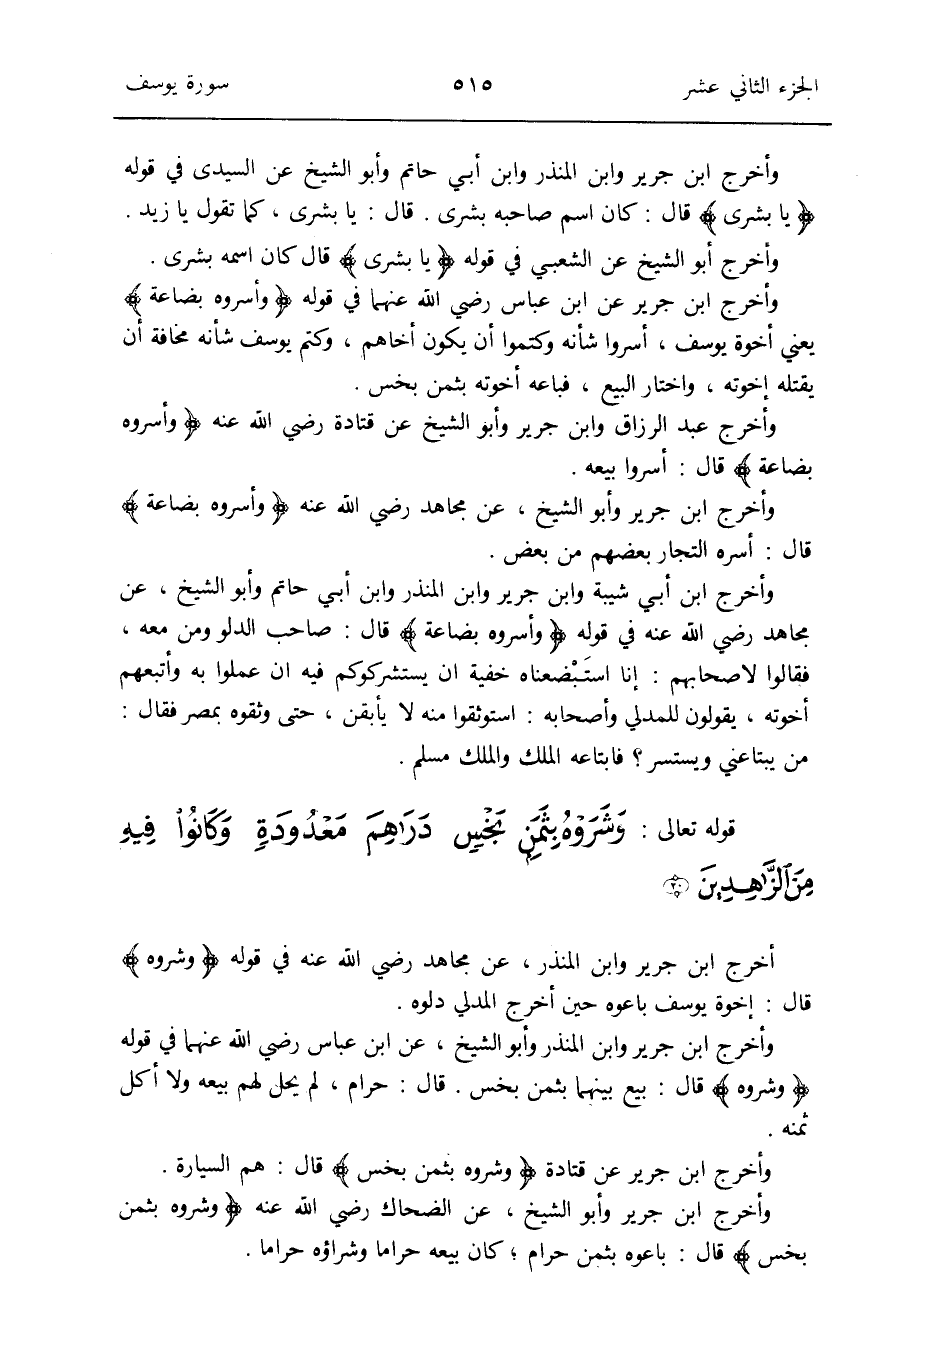 الجزء الثاني عشر ٥١٥ سورة يوسف
وأخرج ابن جرير وابن المنذر وابن أبي حاتم وأبو الشيخ عن السيدى في قوله
﴿ يا بشرى ﴾ قال : كان اسم صاحبه بشرى . قال : يا بشرى ، كما تقول يا زيد .
وأخرج أبو الشيخ عن الشعبي في قوله ﴿ يا بشرى ﴾ قال كان اسمه بشرى .
وأخرج ابن جرير عن ابن عباس رضي الله عنهما في قوله ﴿ وأسروه بضاعة ﴾
يعني أخوة يوسف ، أسروا شأنه وكتموا أن يكون أخاهم ، وكتم يوسف شأنه مخافة أن
يقتله إخوته ، واختار البيع ، فباعه أخوته بثمن بخس .
وأخرج عبد الرزاق وابن جرير وأبو الشيخ عن قتادة رضي الله عنه ﴿ وأسروه
بضاعة ﴾ قال : أسروا بيعه .
وأخرج ابن جرير وأبو الشيخ ، عن مجاهد رضي الله عنه ﴿ وأسروه بضاعة ﴾
قال : أسره التجار بعضهم من بعض .
وأخرج ابن أبي شيبة وابن جرير وابن المنذر وابن أبي حاتم وأبو الشيخ ، عن
مجاهد رضي الله عنه في قوله ﴿ وأسروه بضاعة ﴾ قال : صاحب الدلو ومن معه ،
فقالوا لاصحابهم : إنا استَبْضعناه خفية ان يستشركوكم فيه ان عملوا به وأتبعهم
أخوته ، يقولون للمدلي وأصحابه : استوثقوا منه لا يأبقن ، حتى وثقوه بمصر فقال :
من يبتاعني ويستسر ؟ فابتاعه الملك والملك مسلم .
قوله تعالى : وَشَرَوْهُ بِثَمَنٍ بَخْسٍ دَرَاهِمَ مَعْدُودَةٍ وَكَانُواْ فِيهِ
مِنَ ٱلزَّاهِدِينَ ٢٠
أخرج ابن جرير وابن المنذر ، عن مجاهد رضي الله عنه في قوله ﴿ وشروه ﴾
قال : إخوة يوسف باعوه حين أخرج المدلي دلوه .
وأخرج ابن جرير وابن المنذر وأبو الشيخ ، عن ابن عباس رضي الله عنهما في قوله
﴿ وشروه ﴾ قال : بيع بينهما بثمن بخس . قال : حرام ، لم يحل لهم بيعه ولا أكل
ثمنه .
وأخرج ابن جرير عن قتادة ﴿ وشروه بثمن بخس ﴾ قال : هم السيارة .
وأخرج ابن جرير وأبو الشيخ ، عن الضحاك رضي الله عنه ﴿ وشروه بثمن
بخس ﴾ قال : باعوه بثمن حرام ؛ كان بيعه حراما وشراؤه حراما .